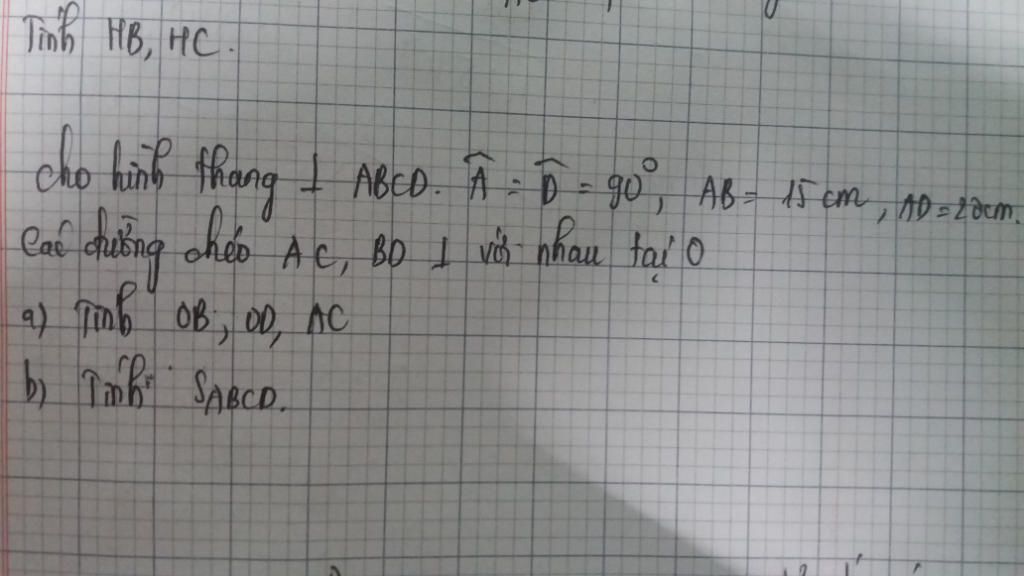 Tính HB, HC.
Cho hình thang ⊥ ABCD. Â = D̂ = 90°, AB = 15cm, AD = 20cm.
Các đường chéo AC, BD ⊥ với nhau tại O
a) Tính OB, OD, AC
b) Tính SABCD.